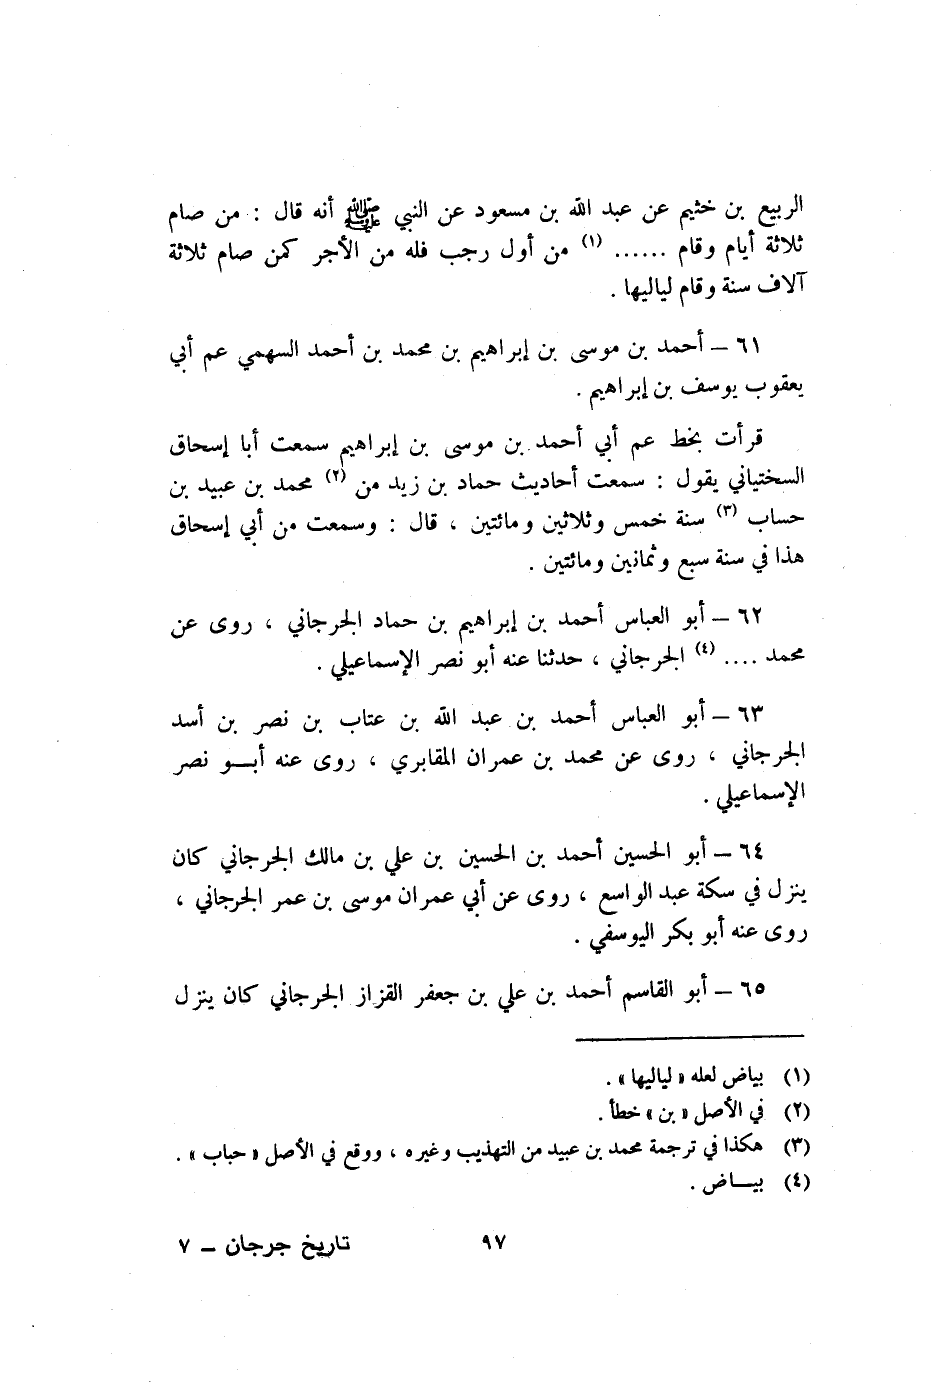 الربيع بن خثيم عن عبد الله بن مسعود عن النبي ﷺ أنه قال : من صام
ثلاثة أيام وقام ...... (١) من أول رجب فله من الأجر كمن صام ثلاثة
آلاف سنة وقام لياليها .
٦١ – أحمد بن موسى بن إبراهيم بن محمد بن أحمد السهمي عم أبي
يعقوب يوسف بن إبراهيم .
قرأت بخط عم أبي أحمد بن موسى بن إبراهيم سمعت أبا إسحاق
السختياني يقول : سمعت أحاديث حماد بن زيد من (٢) محمد بن عبيد بن
حساب (٣) سنة خمس وثلاثين ومائتين ، قال : وسمعت من أبي إسحاق
هذا في سنة سبع وثمانين ومائتين .
٦٢ – أبو العباس أحمد بن إبراهيم بن حماد الجرجاني ، روى عن
محمد .... (٤) الجرجاني ، حدثنا عنه أبو نصر الإسماعيلي .
٦٣ – أبو العباس أحمد بن عبد الله بن عتاب بن نصر بن أسد
الجرجاني ، روى عن محمد بن عمران المقابري ، روى عنه أبـو نصر
الإسماعيلي .
٦٤ – أبو الحسين أحمد بن الحسين بن علي بن مالك الجرجاني كان
ينزل في سكة عبد الواسع ، روى عن أبي عمران موسى بن عمر الجرجاني ،
روى عنه أبو بكر اليوسفي .
٦٥ – أبو القاسم أحمد بن علي بن جعفر القزاز الجرجاني كان ينزل
(١) بياض لعله « لياليها » .
(٢) في الأصل « بن » خطأ .
(٣) هكذا في ترجمة محمد بن عبيد من التهذيب وغيره ، ووقع في الأصل « حباب » .
(٤) بيـاض .
٩٧ تاريخ جرجان – ٧